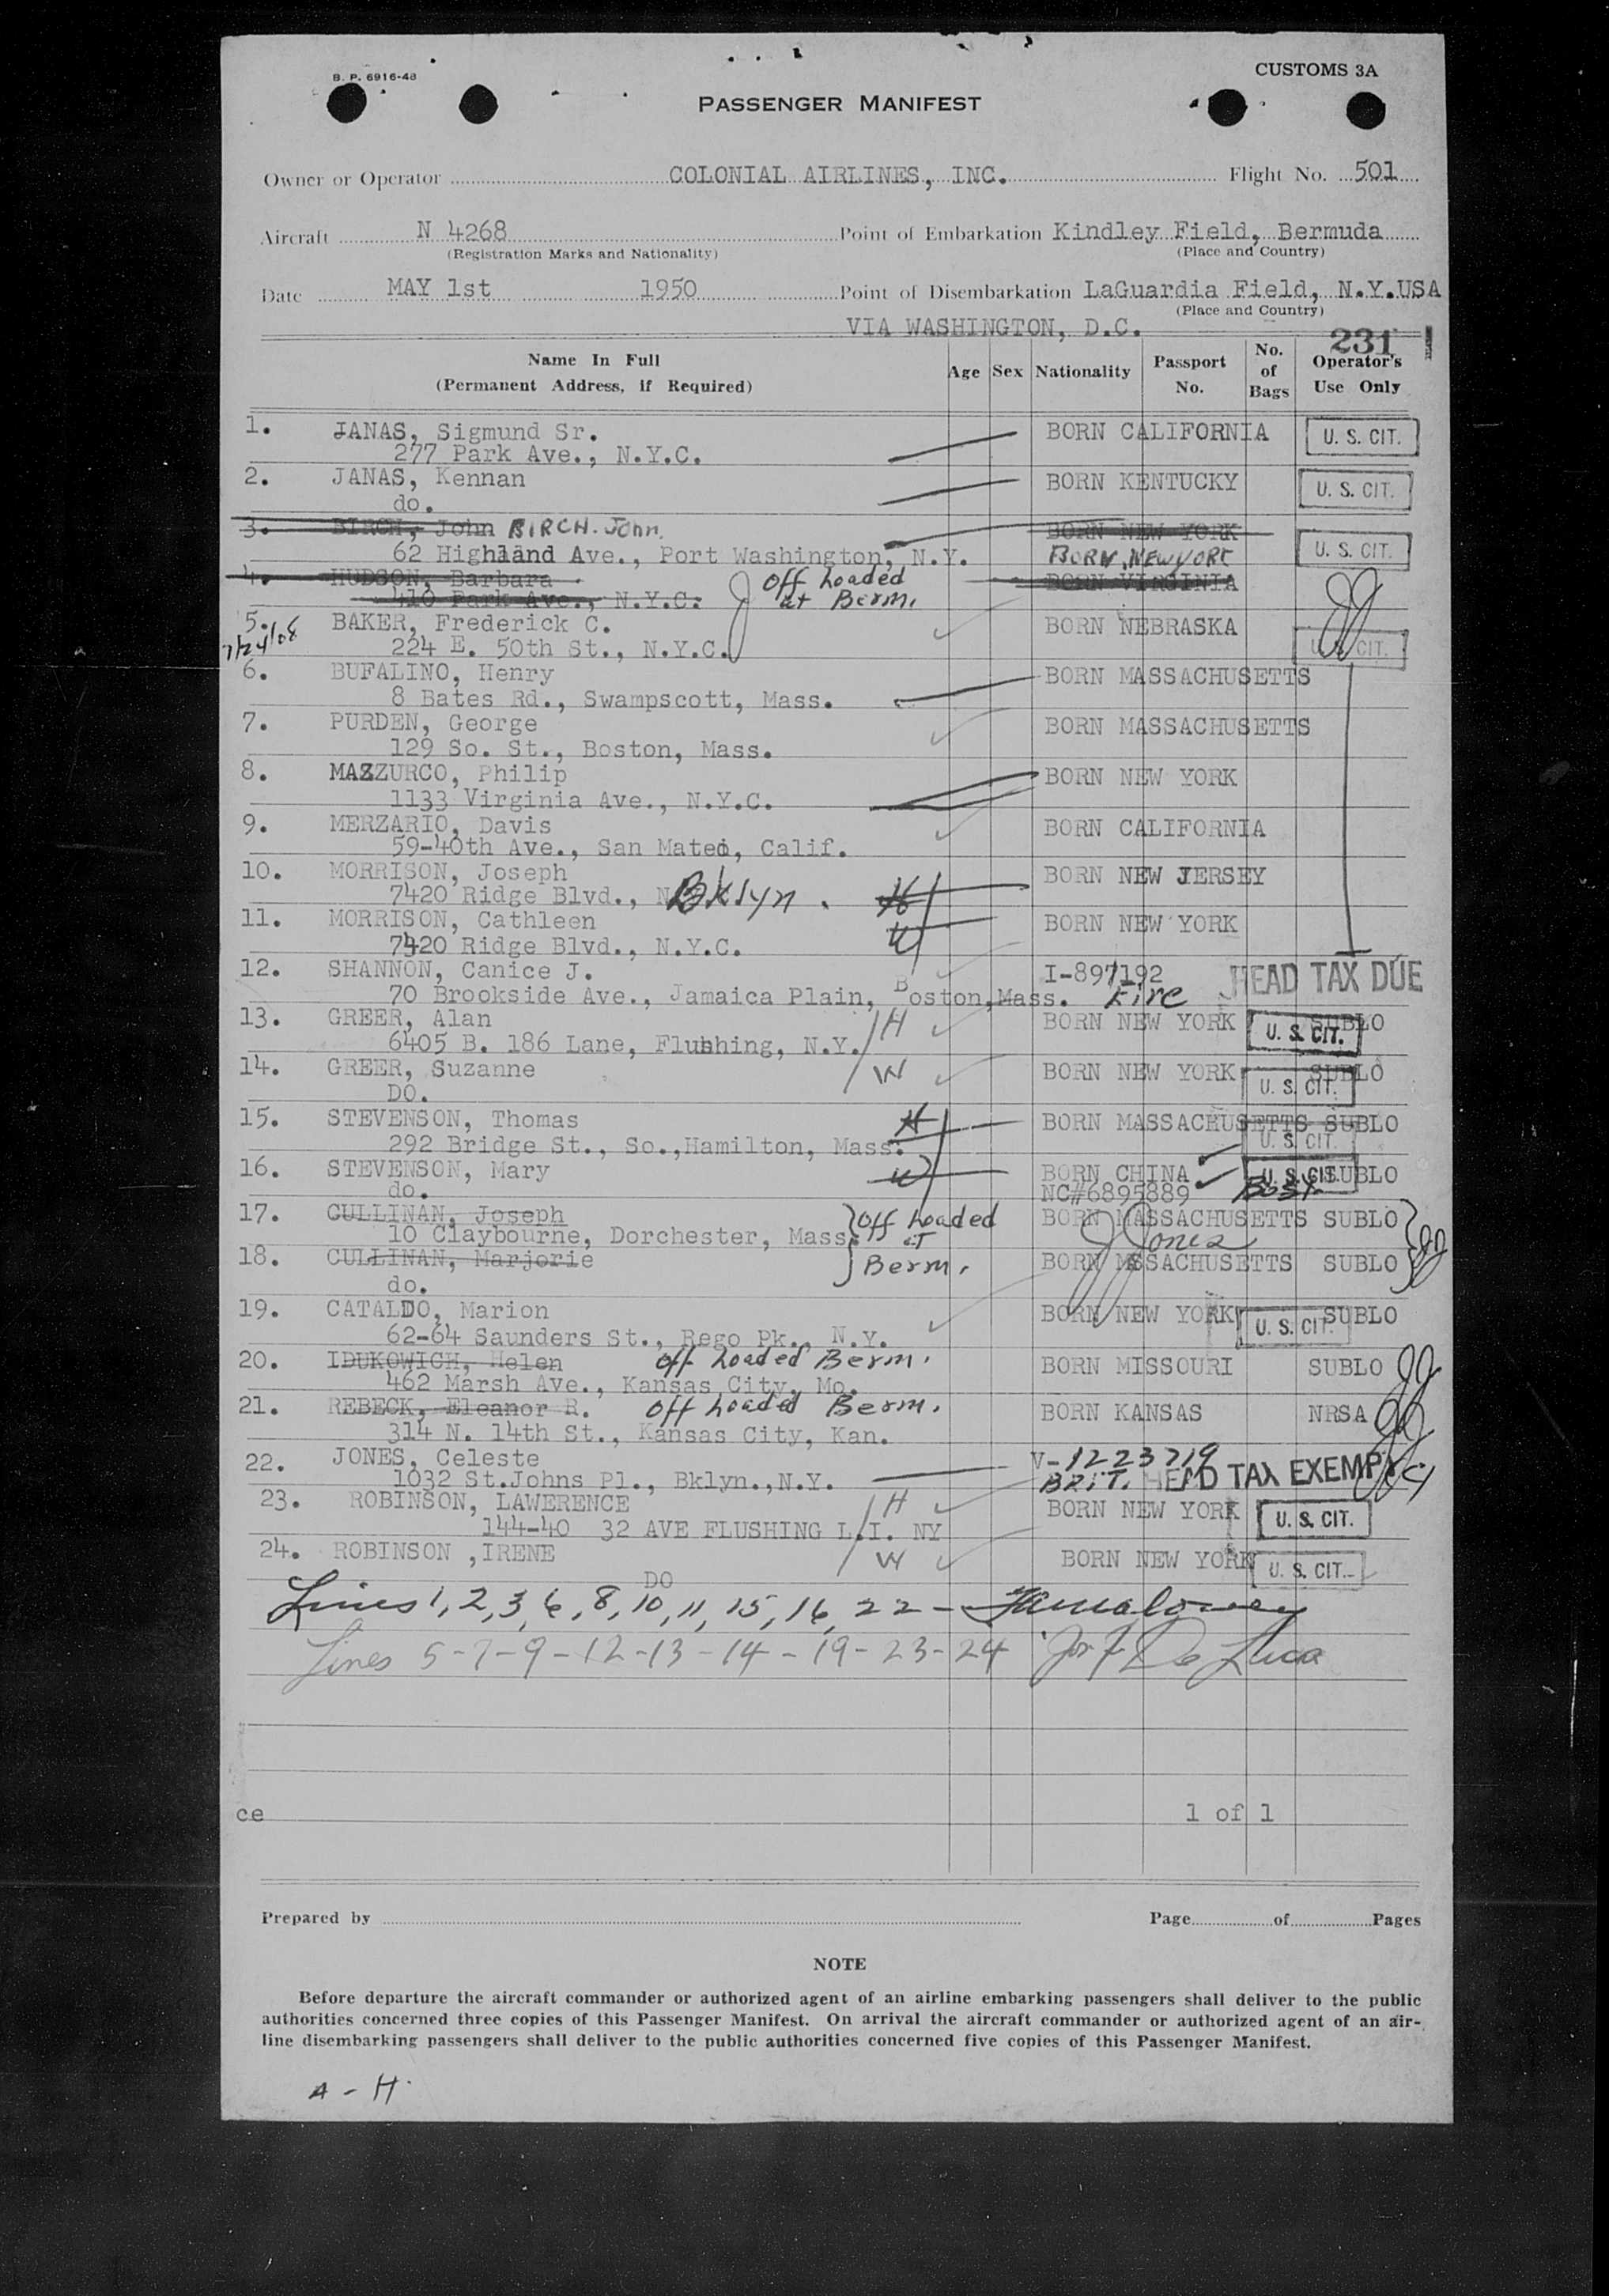 B. P. 6916-48
CUSTOMS 3A
PASSENGER MANIFEST
Owner or Operator COLONIAL AIRLINES, INC. Flight No. 501
Aircraft N 4268 Point of Embarkation Kindley Field, Bermuda
(Registration Marks and Nationality) (Place and Country)
Date MAY 1st 1950 Point of Disembarkation LaGuardia Field, N.Y.USA
(Place and Country)
VIA WASHINGTON, D.C.
231
Name In Full
(Permanent Address, if Required) Age Sex Nationality Passport No. No. of Bags Operator's Use Only
1. JANAS, Sigmund Sr. BORN CALIFORNIA U. S. CIT.
277 Park Ave., N.Y.C.
2. JANAS, Kennan BORN KENTUCKY U. S. CIT.
do.
3. BIRCH, John BIRCH. John. BORN NEW YORK
62 Highland Ave., Port Washington, N.Y. BORN. NEW YORK U. S. CIT.
4. HUDSON, Barbara Off Loaded BORN VIRGINIA
410 Park Ave., N.Y.C. at Berm.
5. BAKER, Frederick C. BORN NEBRASKA
7/24/08 224 E. 50th St., N.Y.C. U. S. CIT.
6. BUFALINO, Henry BORN MASSACHUSETTS
8 Bates Rd., Swampscott, Mass.
7. PURDEN, George BORN MASSACHUSETTS
129 So. St., Boston, Mass.
8. MAZZURCO, Philip BORN NEW YORK
1133 Virginia Ave., N.Y.C.
9. MERZARIO, Davis BORN CALIFORNIA
59-40th Ave., San Mateo, Calif.
10. MORRISON, Joseph BORN NEW JERSEY
7420 Ridge Blvd., Bklyn. H
11. MORRISON, Cathleen BORN NEW YORK
7420 Ridge Blvd., N.Y.C. W
12. SHANNON, Canice J. I-897192 HEAD TAX DUE
70 Brookside Ave., Jamaica Plain, Boston, Mass. Eire
13. GREER, Alan H BORN NEW YORK U. S. CIT. SUBLO
6405 B. 186 Lane, Flushing, N.Y.
14. GREER, Suzanne W BORN NEW YORK U. S. CIT. SUBLO
DO.
15. STEVENSON, Thomas H BORN MASSACHUSETTS SUBLO
292 Bridge St., So.,Hamilton, Mass. U. S. CIT.
16. STEVENSON, Mary W BORN CHINA U. S. CIT. SUBLO
do. NC#6895889 Bost.
17. CULLINAN, Joseph Off Loaded BORN MASSACHUSETTS SUBLO
10 Claybourne, Dorchester, Mass. at J Jones
18. CULLINAN, Marjorie Berm. BORN MASSACHUSETTS SUBLO
do.
19. CATALDO, Marion BORN NEW YORK U. S. CIT. SUBLO
62-64 Saunders St., Rego Pk., N.Y.
20. IDUKOWICH, Helen Off Loaded Berm. BORN MISSOURI SUBLO JJ
462 Marsh Ave., Kansas City, Mo.
21. REBECK, Eleanor R. Off Loaded Berm. BORN KANSAS NRSA JJ
314 N. 14th St., Kansas City, Kan.
22. JONES, Celeste V-1223719
1032 St.Johns Pl., Bklyn.,N.Y. BRIT. HEAD TAX EXEMPT
23. ROBINSON, LAWERENCE H BORN NEW YORK U. S. CIT.
144-40 32 AVE FLUSHING L.I. NY
24. ROBINSON ,IRENE W BORN NEW YORK U. S. CIT.
DO
Lines 1, 2, 3, 6, 8, 10, 11, 15, 16, 22 -
Lines 5-7-9-12-13-14-19-23-24 Jos F De Luca
ce 1 of 1
Prepared by Page of Pages
NOTE
Before departure the aircraft commander or authorized agent of an airline embarking passengers shall deliver to the public
authorities concerned three copies of this Passenger Manifest. On arrival the aircraft commander or authorized agent of an air-
line disembarking passengers shall deliver to the public authorities concerned five copies of this Passenger Manifest.
A - H